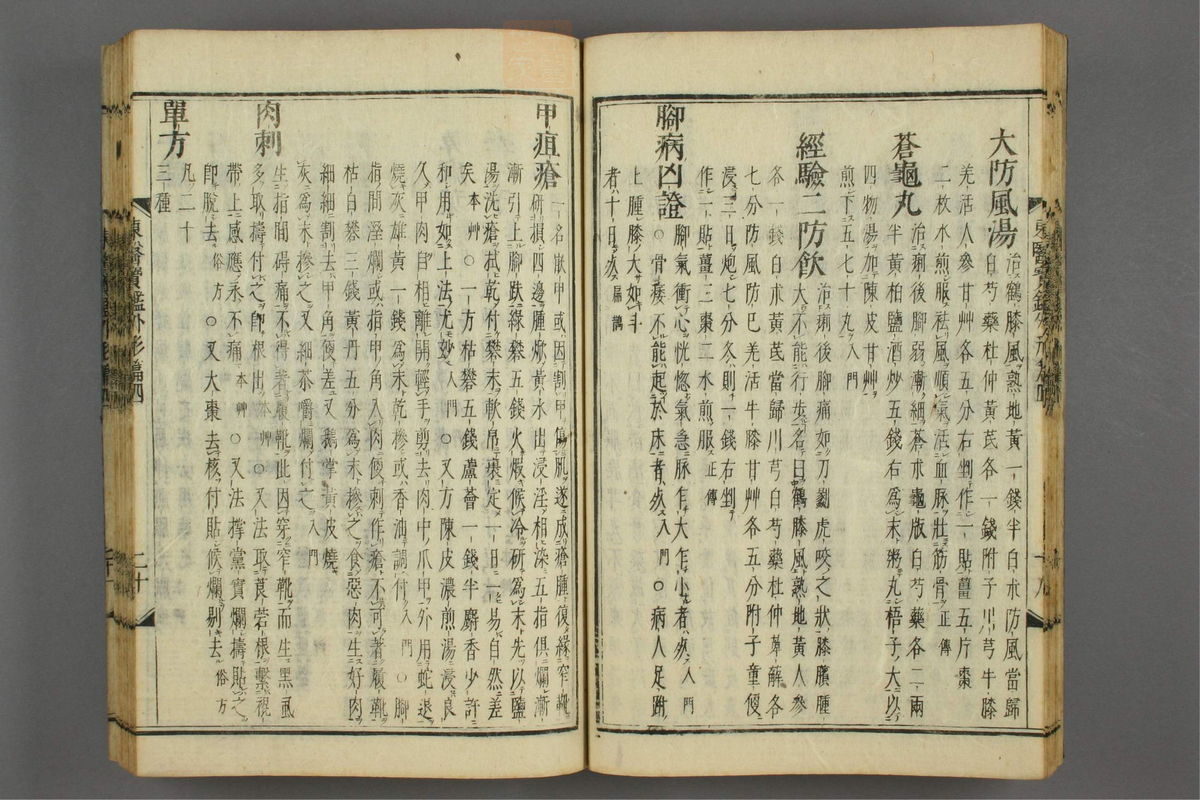 大防風湯 治鶴膝風熟地黃一錢半白朮防風當歸
白芍藥杜仲黃芪各一錢附子川芎牛膝
羌活人參甘艸各五分右剉作一貼薑五片棗
二枚水煎服祛風順氣活血脉壯筋骨正傳
蒼龜丸 治痢後脚弱漸細蒼朮龜版白芍藥各二兩
半黃柏鹽酒炒五錢右爲末粥丸梧子大以
四物湯加陳皮甘艸
煎下五七十丸入門
經驗二防飲 治痢後脚痛如刀劙虎咬之狀膝臏腫
大不能行步名曰鶴膝風熟地黃人參
各一錢白朮黃芪當歸川芎白芍藥杜仲萆薢各
七分防風防巴羌活牛膝甘艸各五分附子童便
浸三日炮七分冬則一錢右剉
作一貼薑三棗二水煎服正傳
脚病凶證 脚氣衝心恍惚氣急脉乍大乍小者必入門
○骨痿不能起於床者必入門○病人足趺
上腫膝大如斗
者十日必扁鵲
東醫寶鑑外形篇四
十九
甲疽瘡 一名嵌甲或因割甲傷肌遂成瘡腫復緣窄靴
漸研損四邊腫焮黃水出浸淫相染五指俱爛漸
漸引上脚趺綠礬五錢火煆候冷研爲末先以鹽
湯洗瘡拭乾付礬末軟帛裹定一日一易自然差
矣本艸○一方枯礬五錢蘆薈一錢半麝香少許
和用如上法尤妙入門○又方陳皮濃煎湯浸良
久甲肉自相離開輕手剪去肉中爪甲外用蛇退
燒灰雄黃一錢爲末乾摻或香油調付入門○脚
指間溼爛或指甲角入肉便刺作瘡不可著履靴
枯白礬三錢黃丹五分爲末摻之食惡肉生好肉
細細割去甲角便差又鵝掌黃皮燒
灰爲末摻之又細茶嚼爛付之入門
肉刺 生指間碍痛不得著靴此因穿窄靴而生黑虱
多取擣付之卽根出本艸○又法取莨菪根繫裩
帶上感應永不痛本艸○又法撑黨實爛擣貼之
卽脫去俗方○又大棗去核付貼候爛剔去俗方
單方 凡二十
三種
東醫寶鑑外形篇四
二十